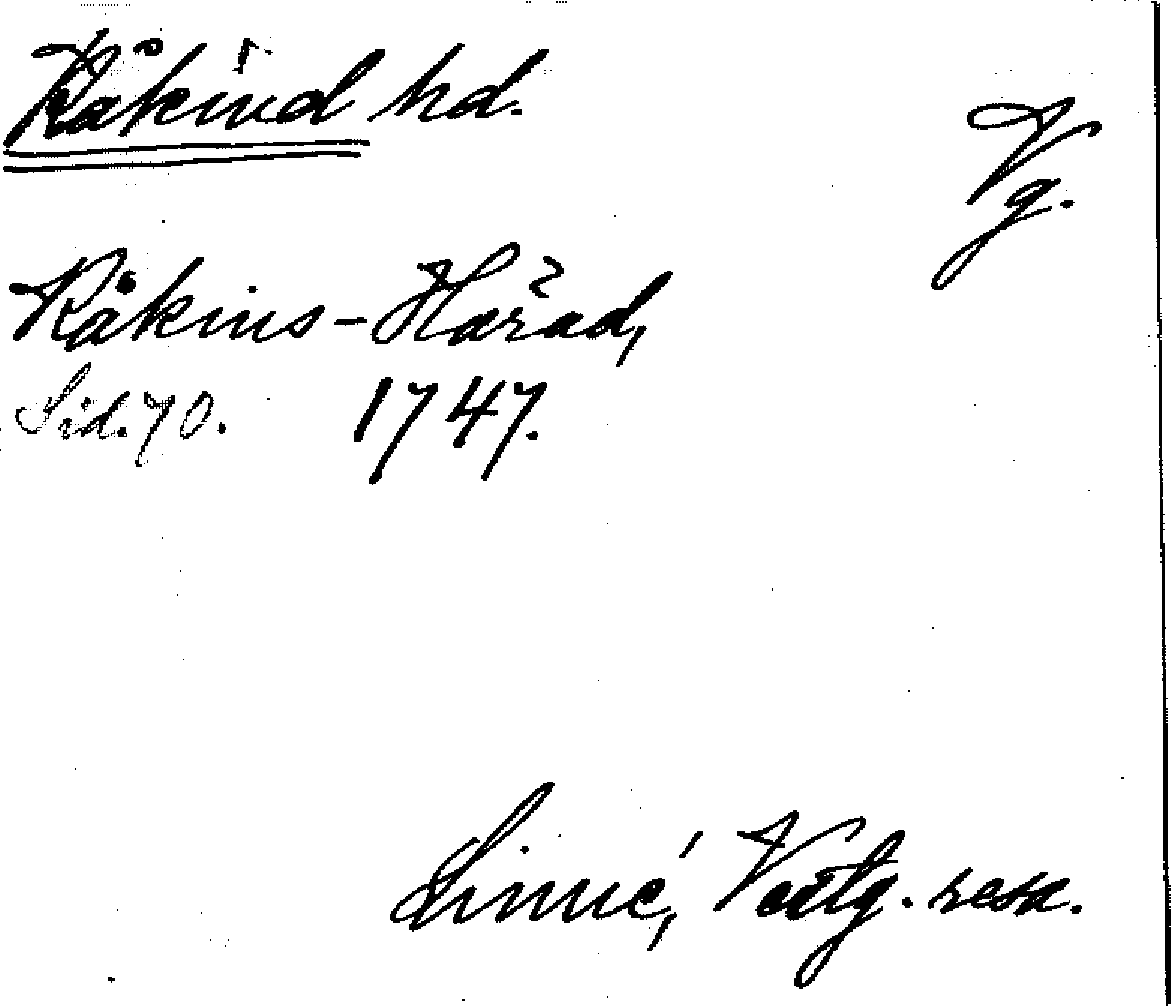 Kåkind hd.
Vg.
Kåkins-Härad,
Sid. 70. 1747.
Linné, Västg. resa.